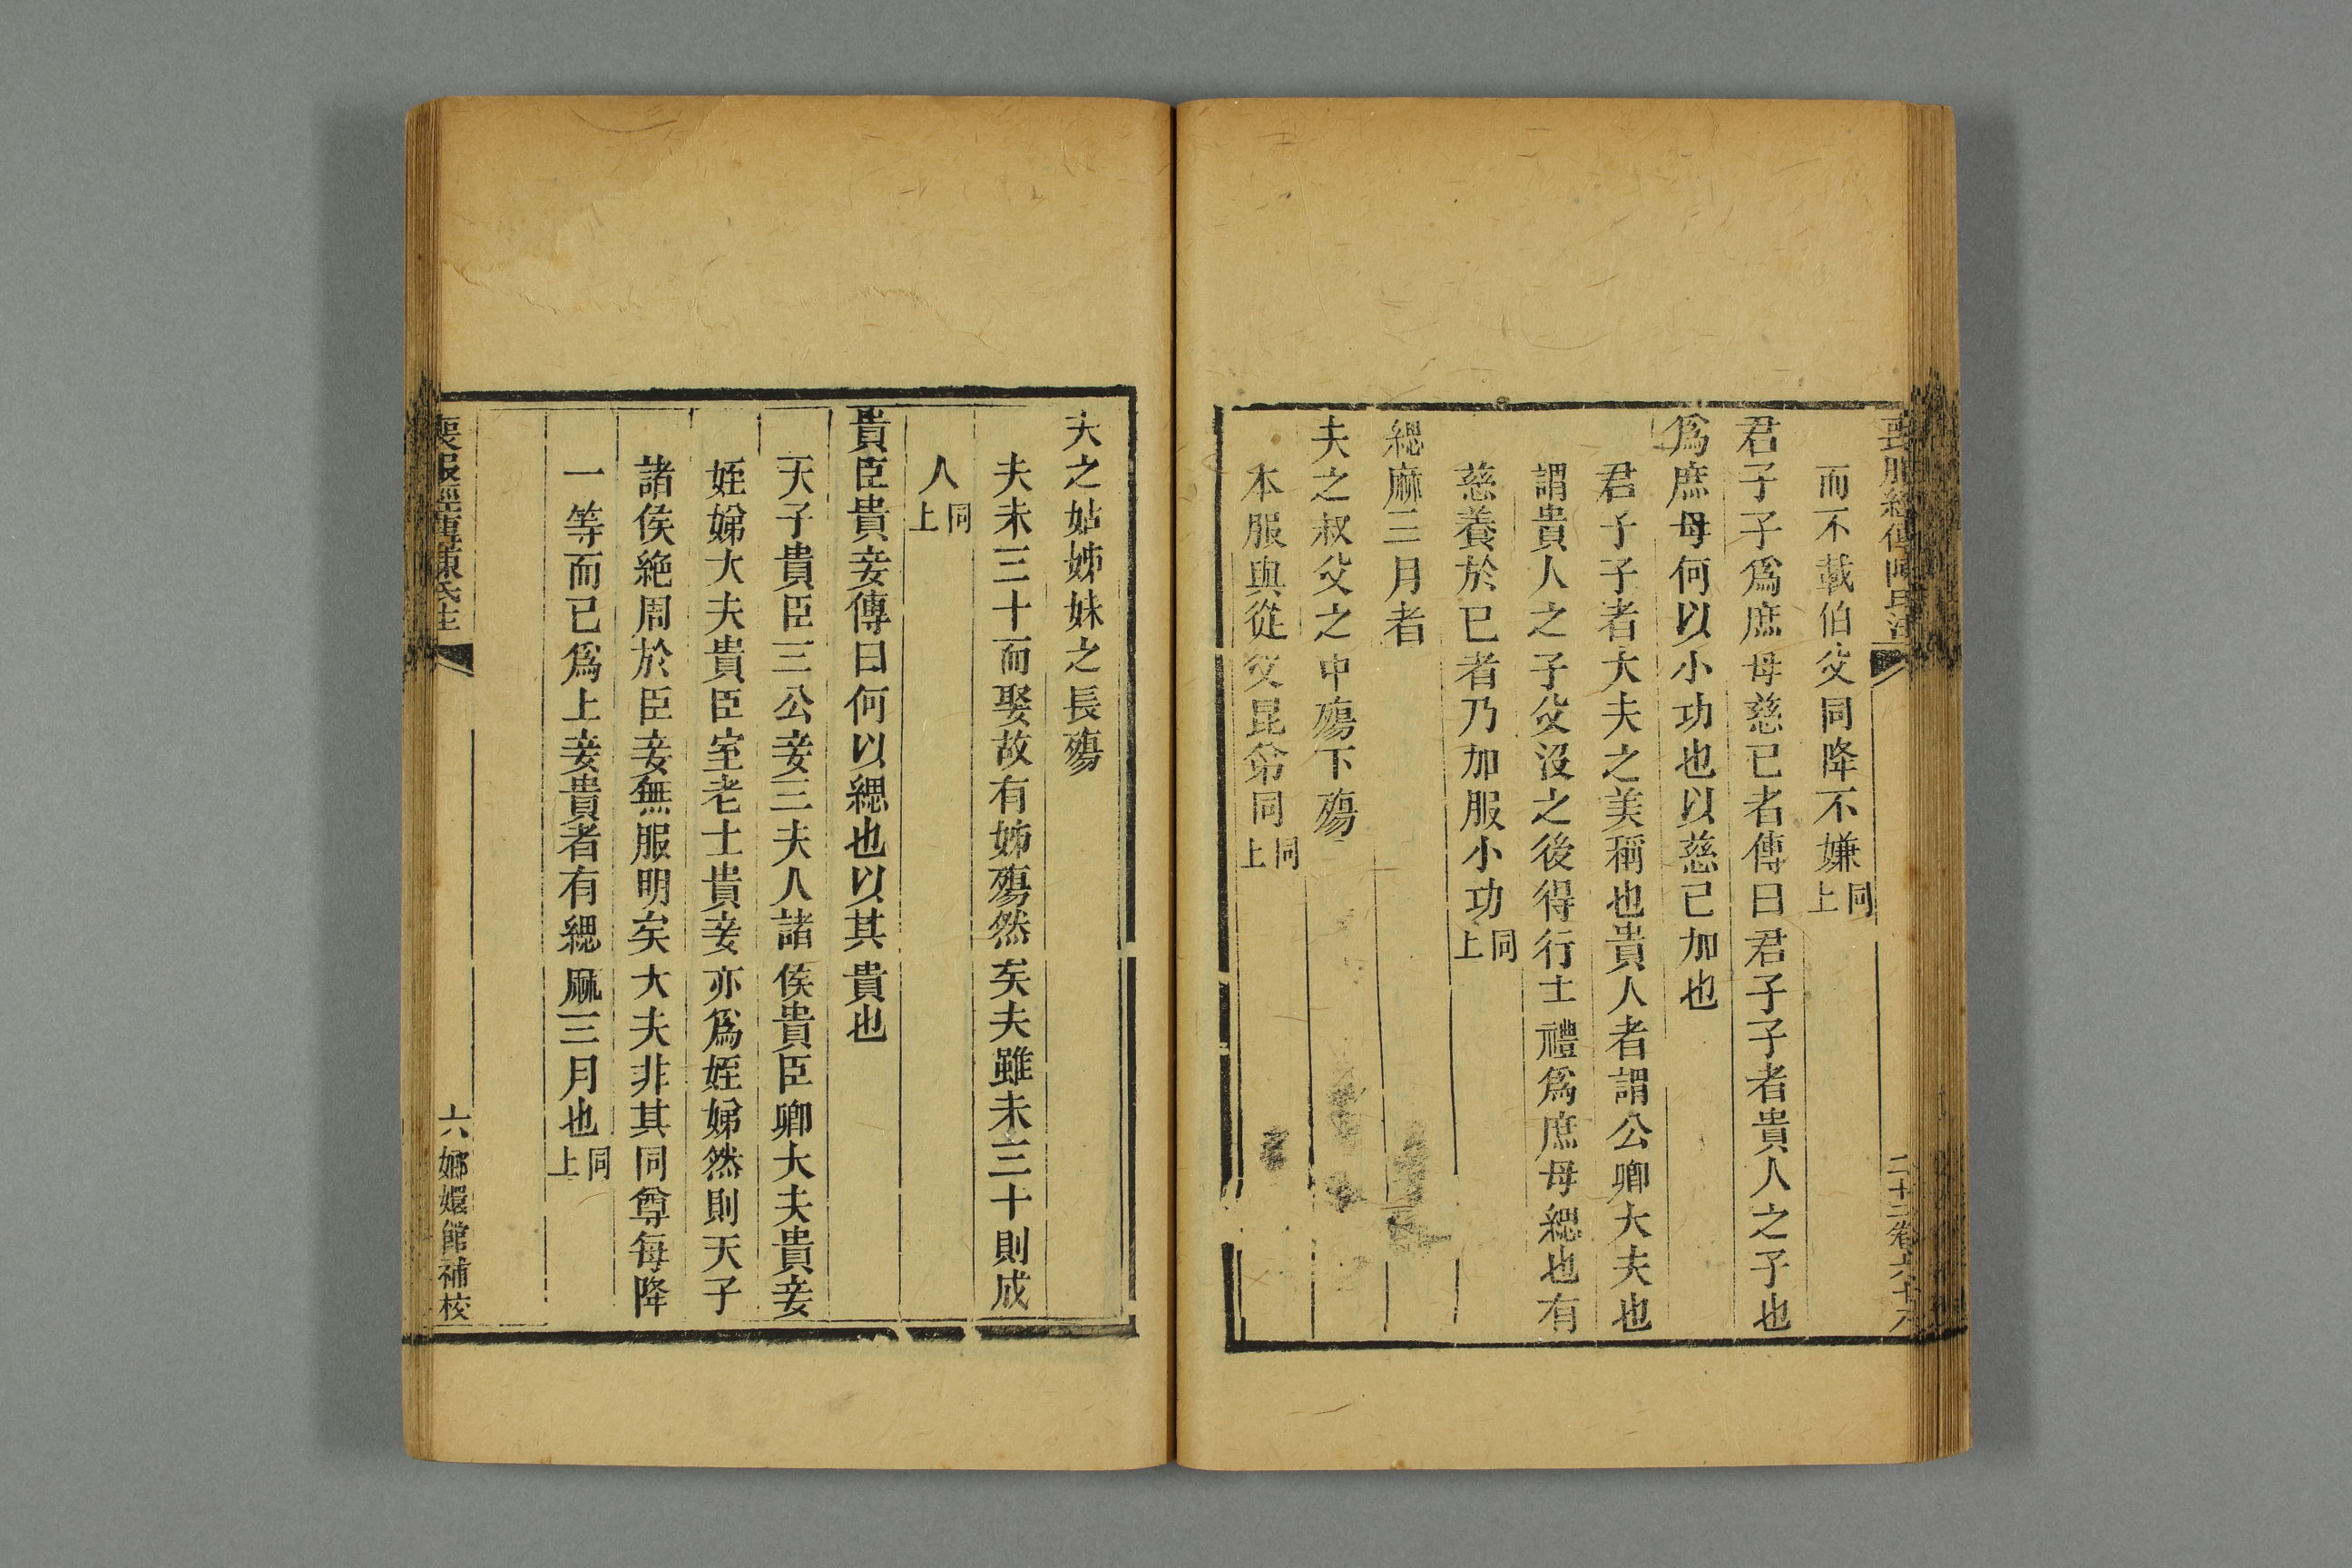 而不載伯父同降不嫌同上
君子子爲庶母慈已者傳曰君子子者貴人之子也
爲庶母何以小功也以慈已加也
君子子者大夫之美稱也貴人者謂公卿大夫也
謂貴人之子父沒之後得行士禮爲庶母緦也有
慈養於已者乃加服小功同上
緦麻三月者
夫之叔父之中殤下殤
本服與從父昆弟同同上
夫之姑姊妹之長殤
夫未三十而娶故有姊殤然矣夫雖未三十則成
人同上
貴臣貴妾傳曰何以緦也以其貴也
天子貴臣三公妾三夫人諸侯貴臣卿大夫貴妾
姪娣大夫貴臣室老士貴妾亦爲姪娣然則天子
諸侯絶周於臣妾無服明矣大夫非其同尊每降
一等而已爲上妾貴者有緦麻三月也同上
喪服經傳陳氏注 六 嫏嬛館補校